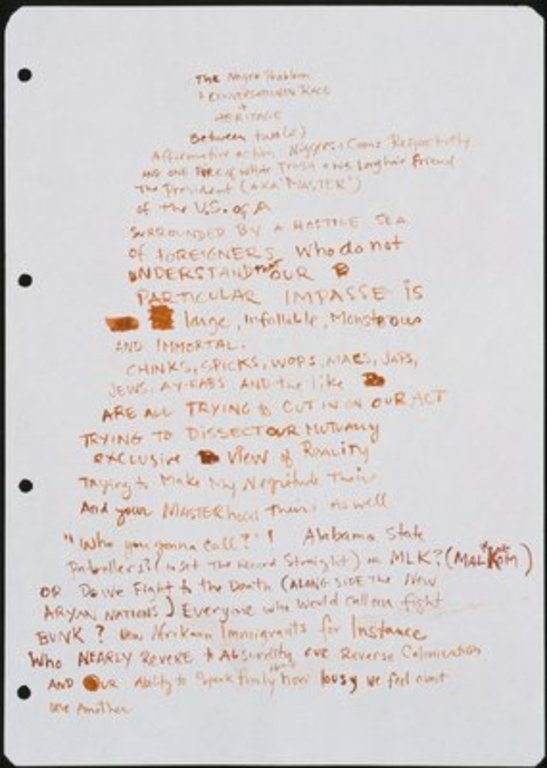 The Negro Problem
A CONVERSATION ON RACE
+
HERITAGE
Between two(2)
Affirmative action Niggers + Coons Respectively
AND ONE piece of white Trash + his Longhair friend
The President (AKA "MASTER")
of the U.S. of A
SURROUNDED BY A HOSTILE SEA
of FOREIGNERS who do not
UNDERSTAND THAT OUR
PARTICULAR IMPASSE IS
large, infallible, Monstrous
AND IMMORTAL.
CHINKS, SPICKS, WOPS, MARS, JAPS,
JEWS, AY-RABS AND the like
ARE ALL TRYING to CUT IN ON OUR ACT
TRYING TO DISSECT OUR MUTUALLY
exclusive view of Reality
Trying to Make My Negritude Theirs
And your MASTERhood Theirs as well
"Who you gonna call?"! Alabama State
(to Set The Record Straight) or MLK? (MALKolm)
OR Do we Fight to the Death (ALONGSIDE The New
ARYAN NATIONS) Everyone who would call our fight
BUNK? New Afrikaan Immigrants for Instance
Who NEARLY Revere to Absurdity our Reverse Colonization
AND OUR Ability to Speak firmly about how lousy we feel about
one Another